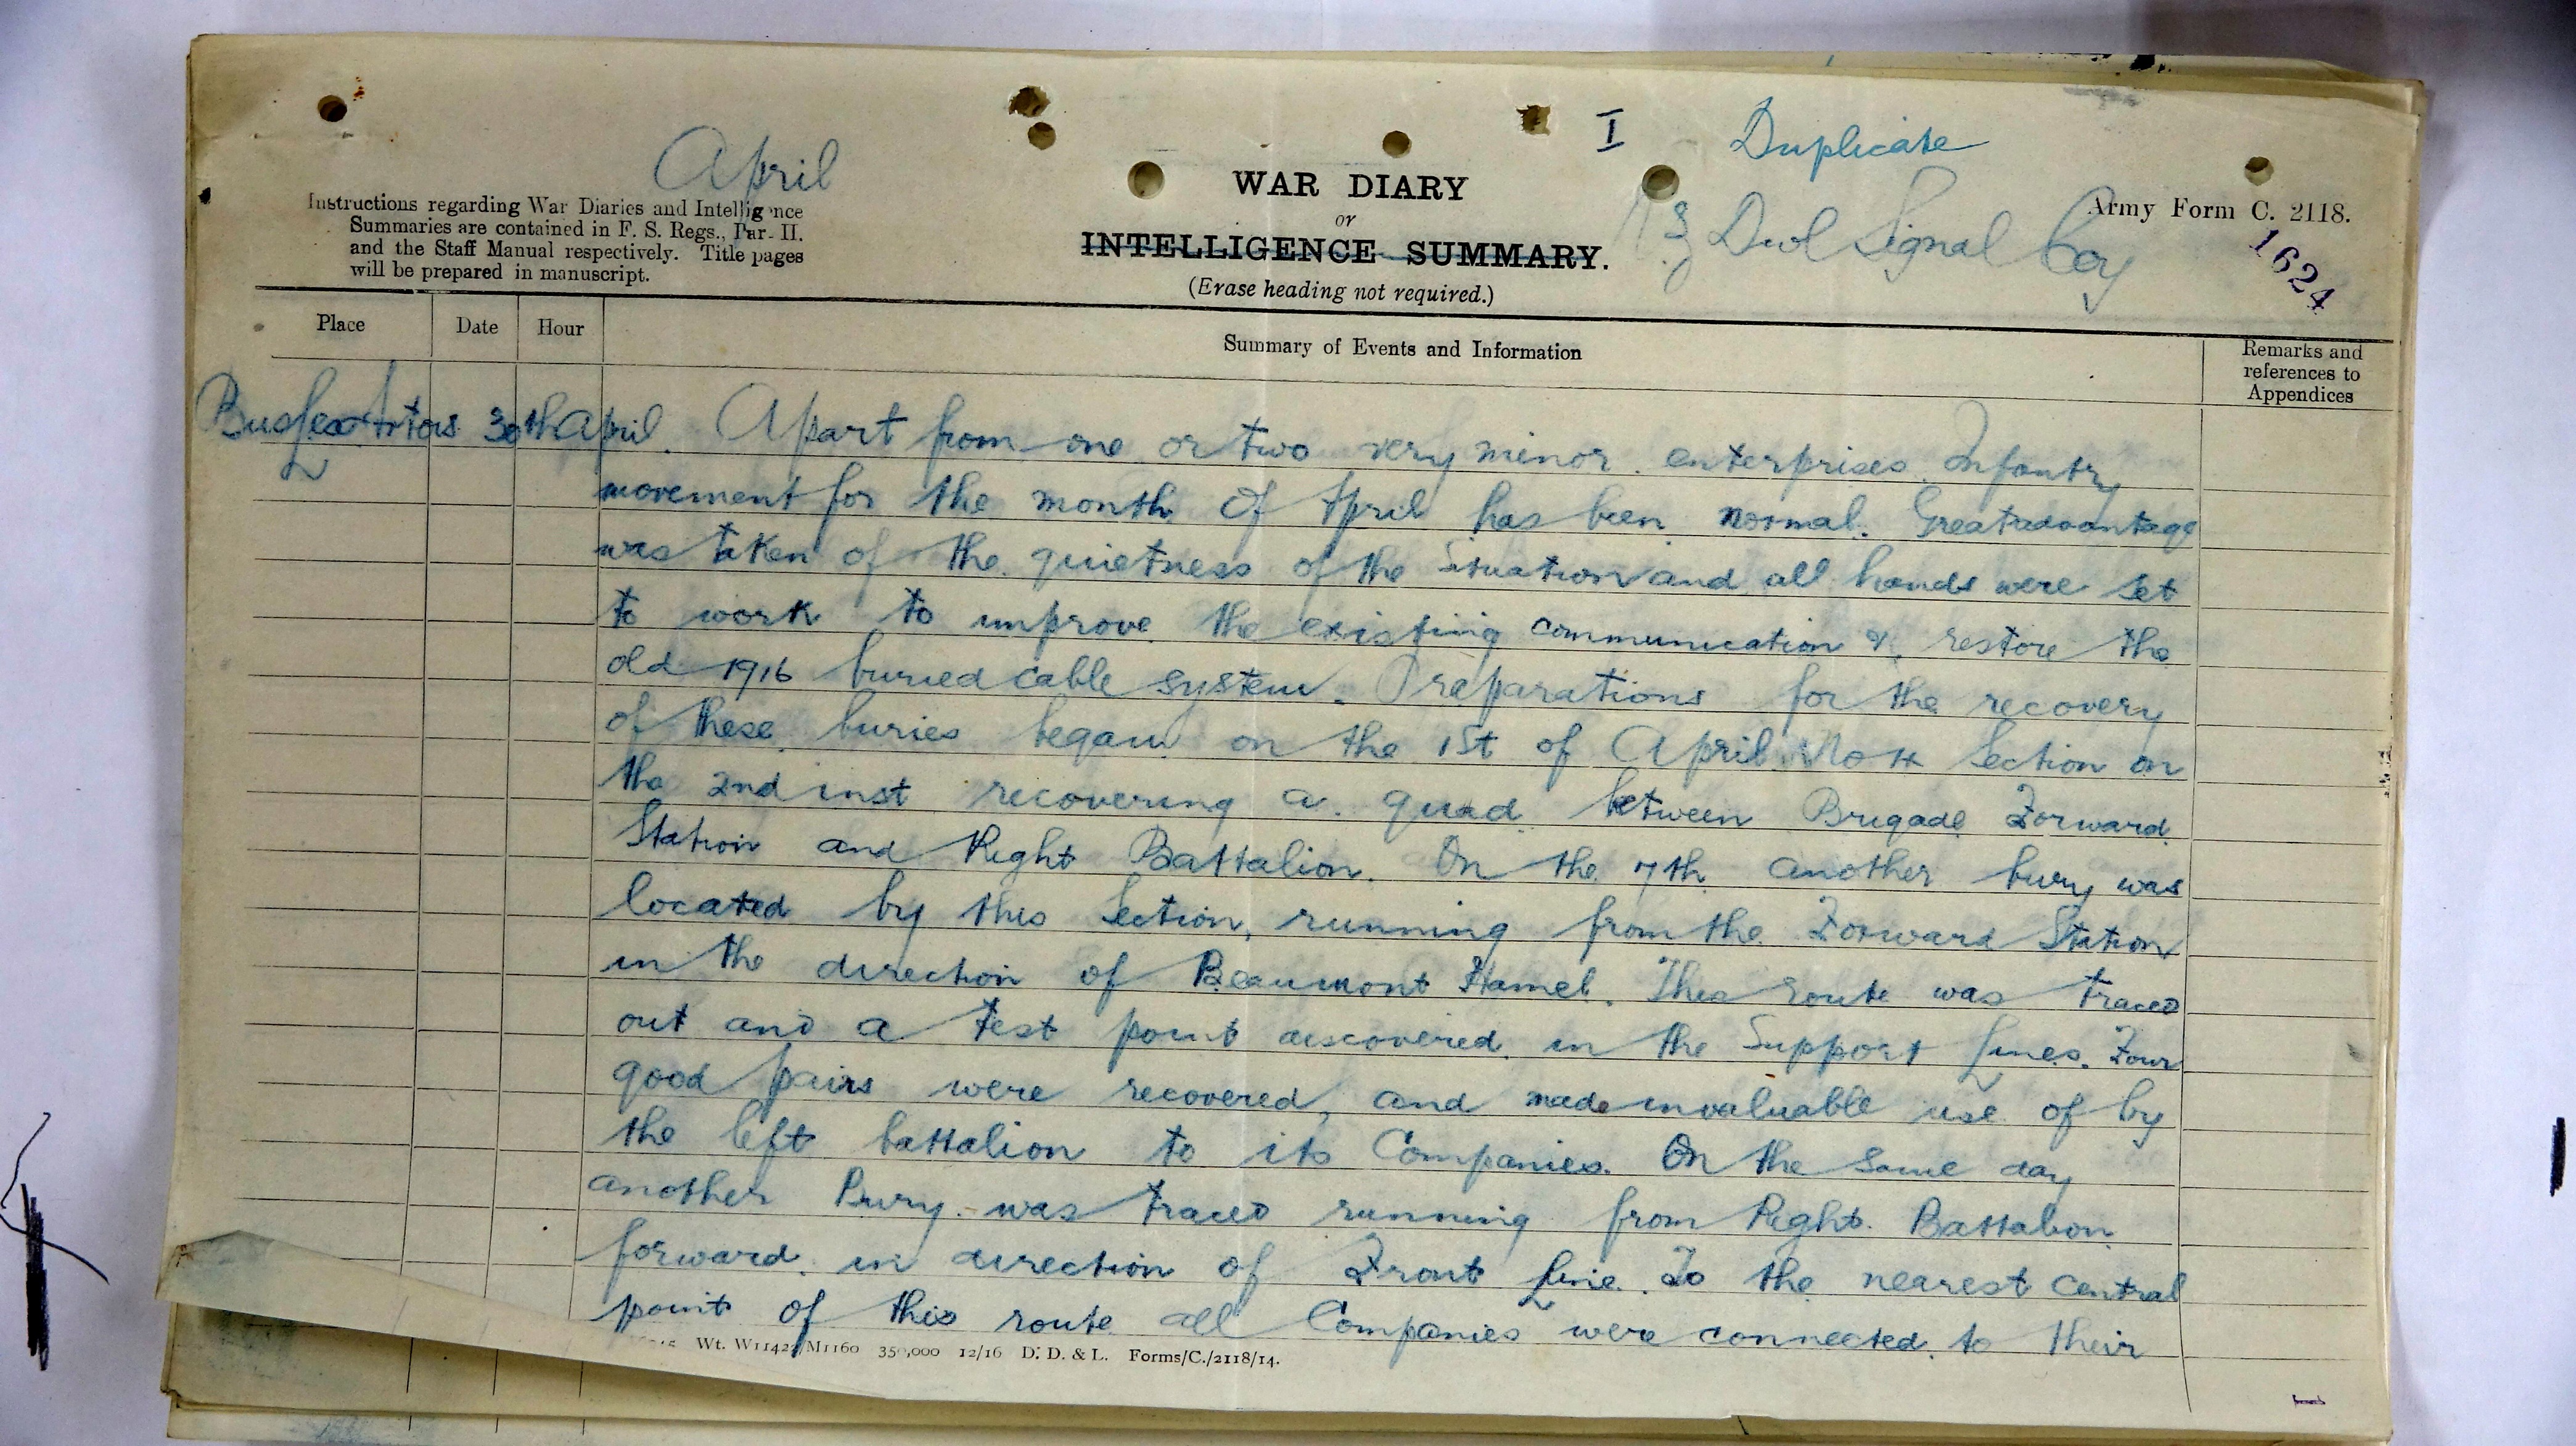 I
Duplicate
April
WAR DIARY
or
INTELLIGENCE SUMMARY.
(Erase heading not required.)
Divl Signal Coy
Army Form C. 2118.
1624
Instructions regarding War Diaries and Intelligence
Summaries are contained in F. S. Regs., Par- II.
and the Staff Manual respectively. Title pages
will be prepared in manuscript.
Place Date Hour Summary of Events and Information Remarks and
references to
Appendices
Bus les Artois 30th April. Apart from one or two very minor enterprises Infantry
movement for the month of April has been normal. Great advantage
was taken of the quietness of the Situation and all hands were set
to work to improve the existing communication & restore the
old 1916 buried cable system. Preparations for the recovery
of these buries began on the 1st of April. No 4 Section on
the 2nd inst recovering a quad between Brigade Forward
Station and Right Battalion. On the 7th another bury was
located by this Section, running from the Forward Station
in the direction of Beaumont Hamel. This route was traced
out and a test point discovered in the Support Lines. Four
good pairs were recovered, and made invaluable use of by
the left battalion to its Companies. On the same day
another Bury was traced running from Right Battalion
forward in direction of Front Line. To the nearest central
point of this route all Companies were connected to their
Wt. W11422/M1160 350,000 12/16 D. D. & L. Forms/C./2118/14.
1